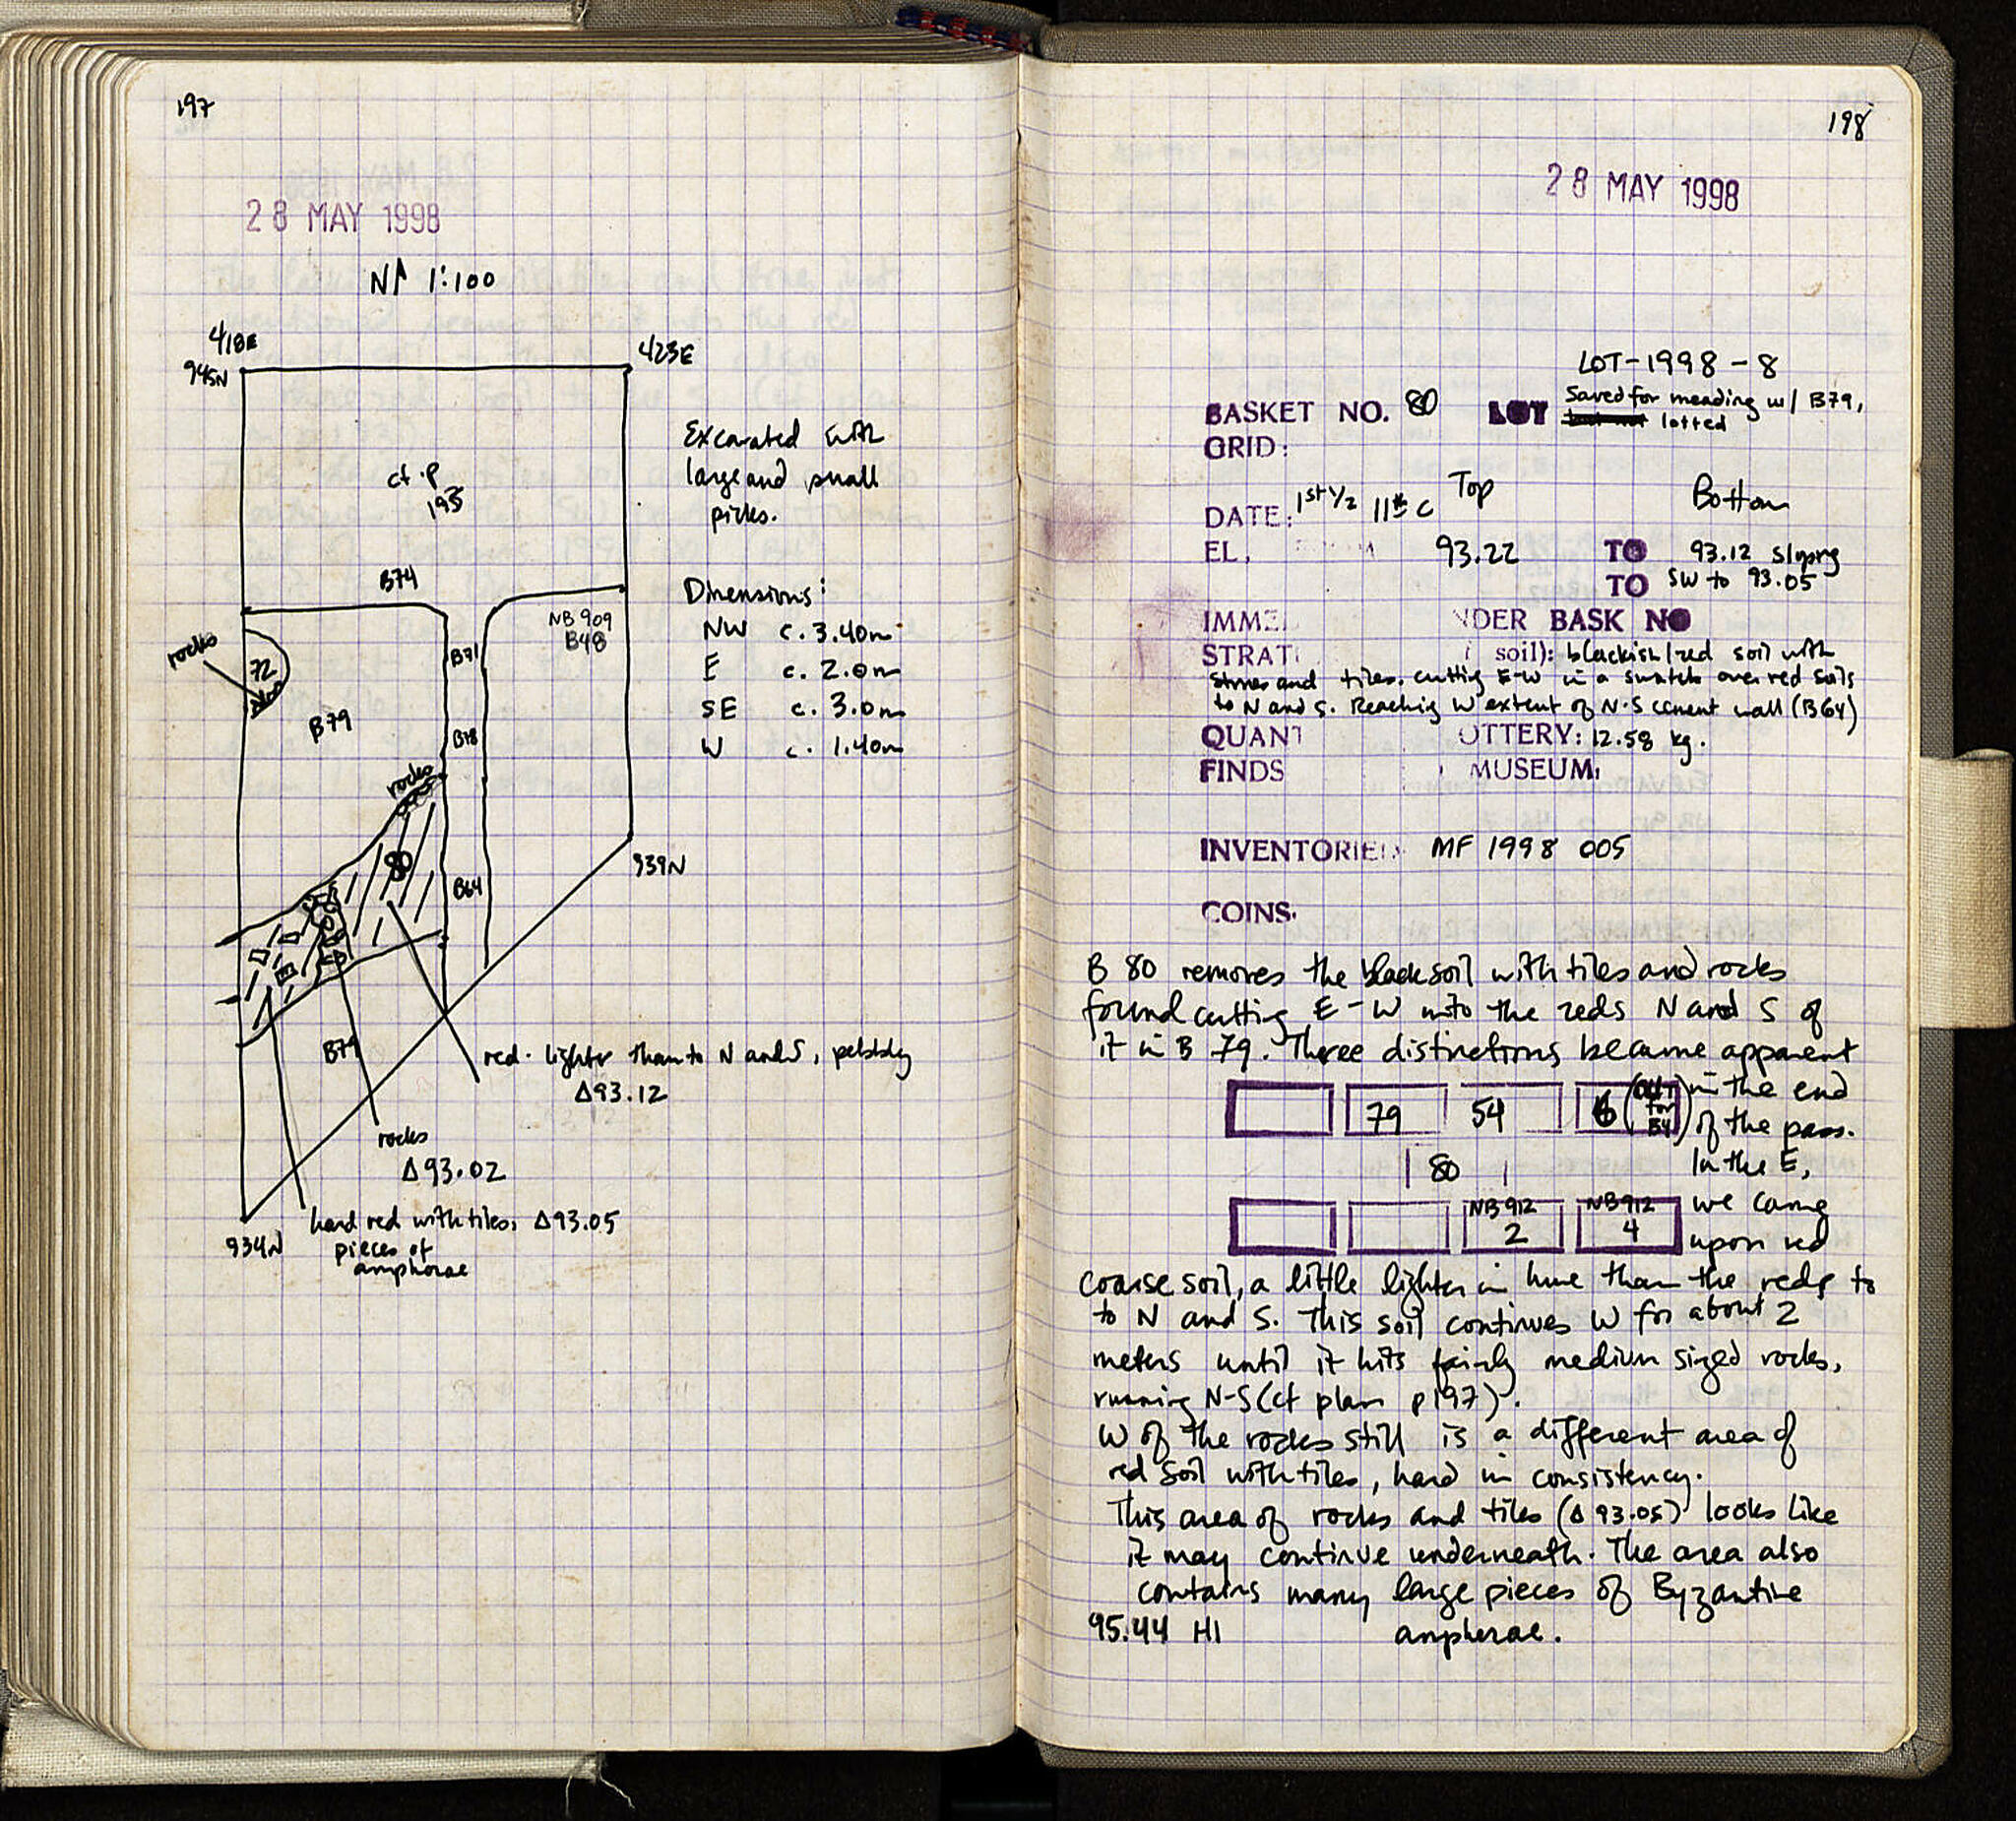 197
28 MAY 1998
N 1:100
418E
423E
945N
Excavated with
large and small
picks.
cf. p
195
B74
NB 909
B48
Dimensions:
NW c. 3.40m
E c. 2.0m
SE c. 3.0m
W c. 1.40m
rocks
72
B71
B79
B78
rocks
80
B64
939N
B79
red. lighter than to N and S, pebbly
Δ93.12
rocks
Δ93.02
hard red with tiles, Δ93.05
pieces of
amphorae
934N
198
28 MAY 1998
LOT-1998-8
BASKET NO. 80 LOT Saved for meading w/ B79,
lotted
GRID:
Top Bottom
DATE: 1st 1/2 11th C
EL, 93.22 TO 93.12 sloping
TO SW to 93.05
IMME NDER BASK NO
STRAT soil): blackish/red soil with
stones and tiles. cutting E-W in a swatch over red soils
to N and S. Reaching W extent of N-S cement wall (B64)
QUANT OTTERY: 12.58 kg.
FINDS MUSEUM,
INVENTORIED MF 1998 005
COINS.
B 80 removes the black soil with tiles and rocks
found cutting E-W into the reds N and S of
it in B 79. Three distinctions became apparent
79 54 (cut for in the end
of the pass.
80 In the E,
NB 912 2 NB 912 4 we came
upon red
coarse soil, a little lighter in hue than the reds to
to N and S. This soil continues W for about 2
meters until it hits fairly medium sized rocks,
running N-S (cf plan p197).
W of the rocks still is a different area of
red soil with tiles, hard in consistency.
This area of rocks and tiles (Δ 93.05) looks like
it may continue underneath. The area also
contains many large pieces of Byzantine
95.44 HI amphorae.